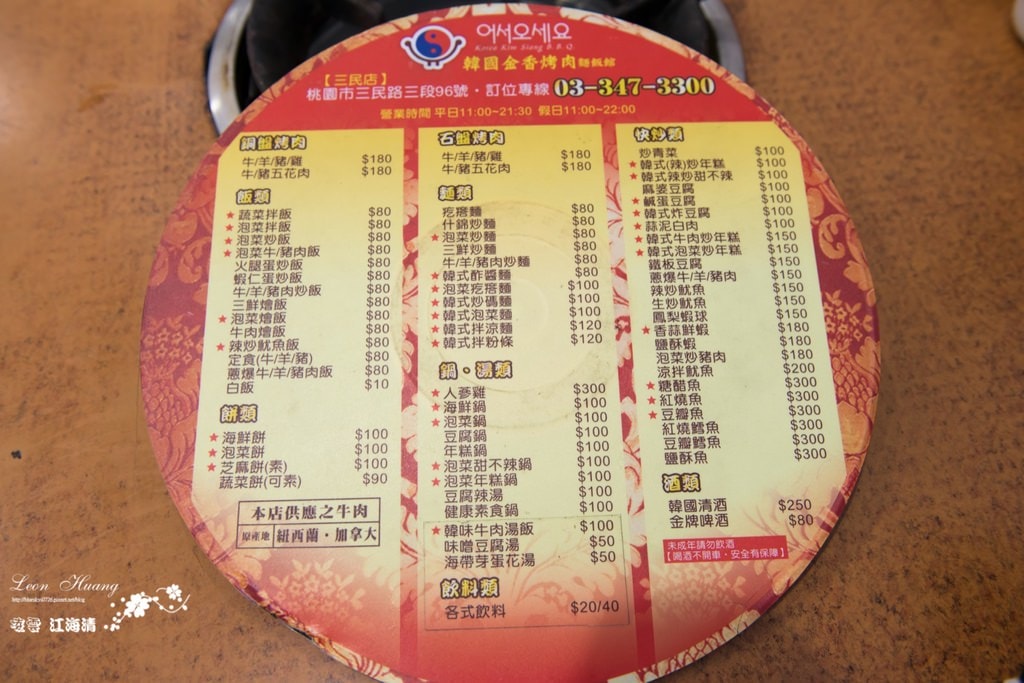 어서오세요
Korea Kim Siang B.B.Q.
韓國金香烤肉麵飯館
【三民店】
桃園市三民路三段96號・訂位專線 03-347-3300
營業時間 平日11:00~21:30 假日11:00~22:00
銅盤烤肉
牛/羊/豬/雞 $180
牛/豬五花肉 $180
飯類
★蔬菜拌飯 $80
★泡菜拌飯 $80
★泡菜炒飯 $80
★泡菜牛/豬肉飯 $80
火腿蛋炒飯 $80
蝦仁蛋炒飯 $80
牛/羊/豬肉炒飯 $80
三鮮燴飯 $80
★泡菜燴飯 $80
牛肉燴飯 $80
★辣炒魷魚飯 $80
定食(牛/羊/豬) $80
蔥爆牛/羊/豬肉飯 $80
白飯 $10
餅類
★海鮮餅 $100
★泡菜餅 $100
★芝麻餅(素) $100
蔬菜餅(可素) $90
本店供應之牛肉
原產地 紐西蘭・加拿大
石盤烤肉
牛/羊/豬/雞 $180
牛/豬五花肉 $180
麵類
疙瘩麵 $80
什錦炒麵 $80
★泡菜炒麵 $80
三鮮炒麵 $80
牛/羊/豬肉炒麵 $80
★韓式酢醬麵 $80
★泡菜疙瘩麵 $100
★韓式炒碼麵 $100
★韓式泡菜麵 $100
★韓式拌涼麵 $120
★韓式拌粉條 $120
鍋・湯類
★人蔘雞 $300
★海鮮鍋 $100
★泡菜鍋 $100
豆腐鍋 $100
年糕鍋 $100
★泡菜甜不辣鍋 $100
★泡菜年糕鍋 $100
豆腐辣湯 $100
健康素食鍋 $100
★韓味牛肉湯飯 $100
味噌豆腐湯 $50
海帶芽蛋花湯 $50
飲料類
各式飲料 $20/40
快炒類
炒青菜 $100
★韓式(辣)炒年糕 $100
★韓式辣炒甜不辣 $100
麻婆豆腐 $100
★鹹蛋豆腐 $100
★韓式炸豆腐 $100
蒜泥白肉 $100
★韓式牛肉炒年糕 $150
★韓式泡菜炒年糕 $150
鐵板豆腐 $150
蔥爆牛/羊/豬肉 $150
辣炒魷魚 $150
生炒魷魚 $150
鳳梨蝦球 $150
★香蒜鮮蝦 $180
鹽酥蝦 $180
泡菜炒豬肉 $180
涼拌魷魚 $200
★糖醋魚 $300
★紅燒魚 $300
★豆瓣魚 $300
紅燒鱈魚 $300
豆瓣鱈魚 $300
鹽酥魚 $300
酒類
韓國清酒 $250
金牌啤酒 $80
未成年請勿飲酒
【喝酒不開車・安全有保障】
Leon Huang
江海清